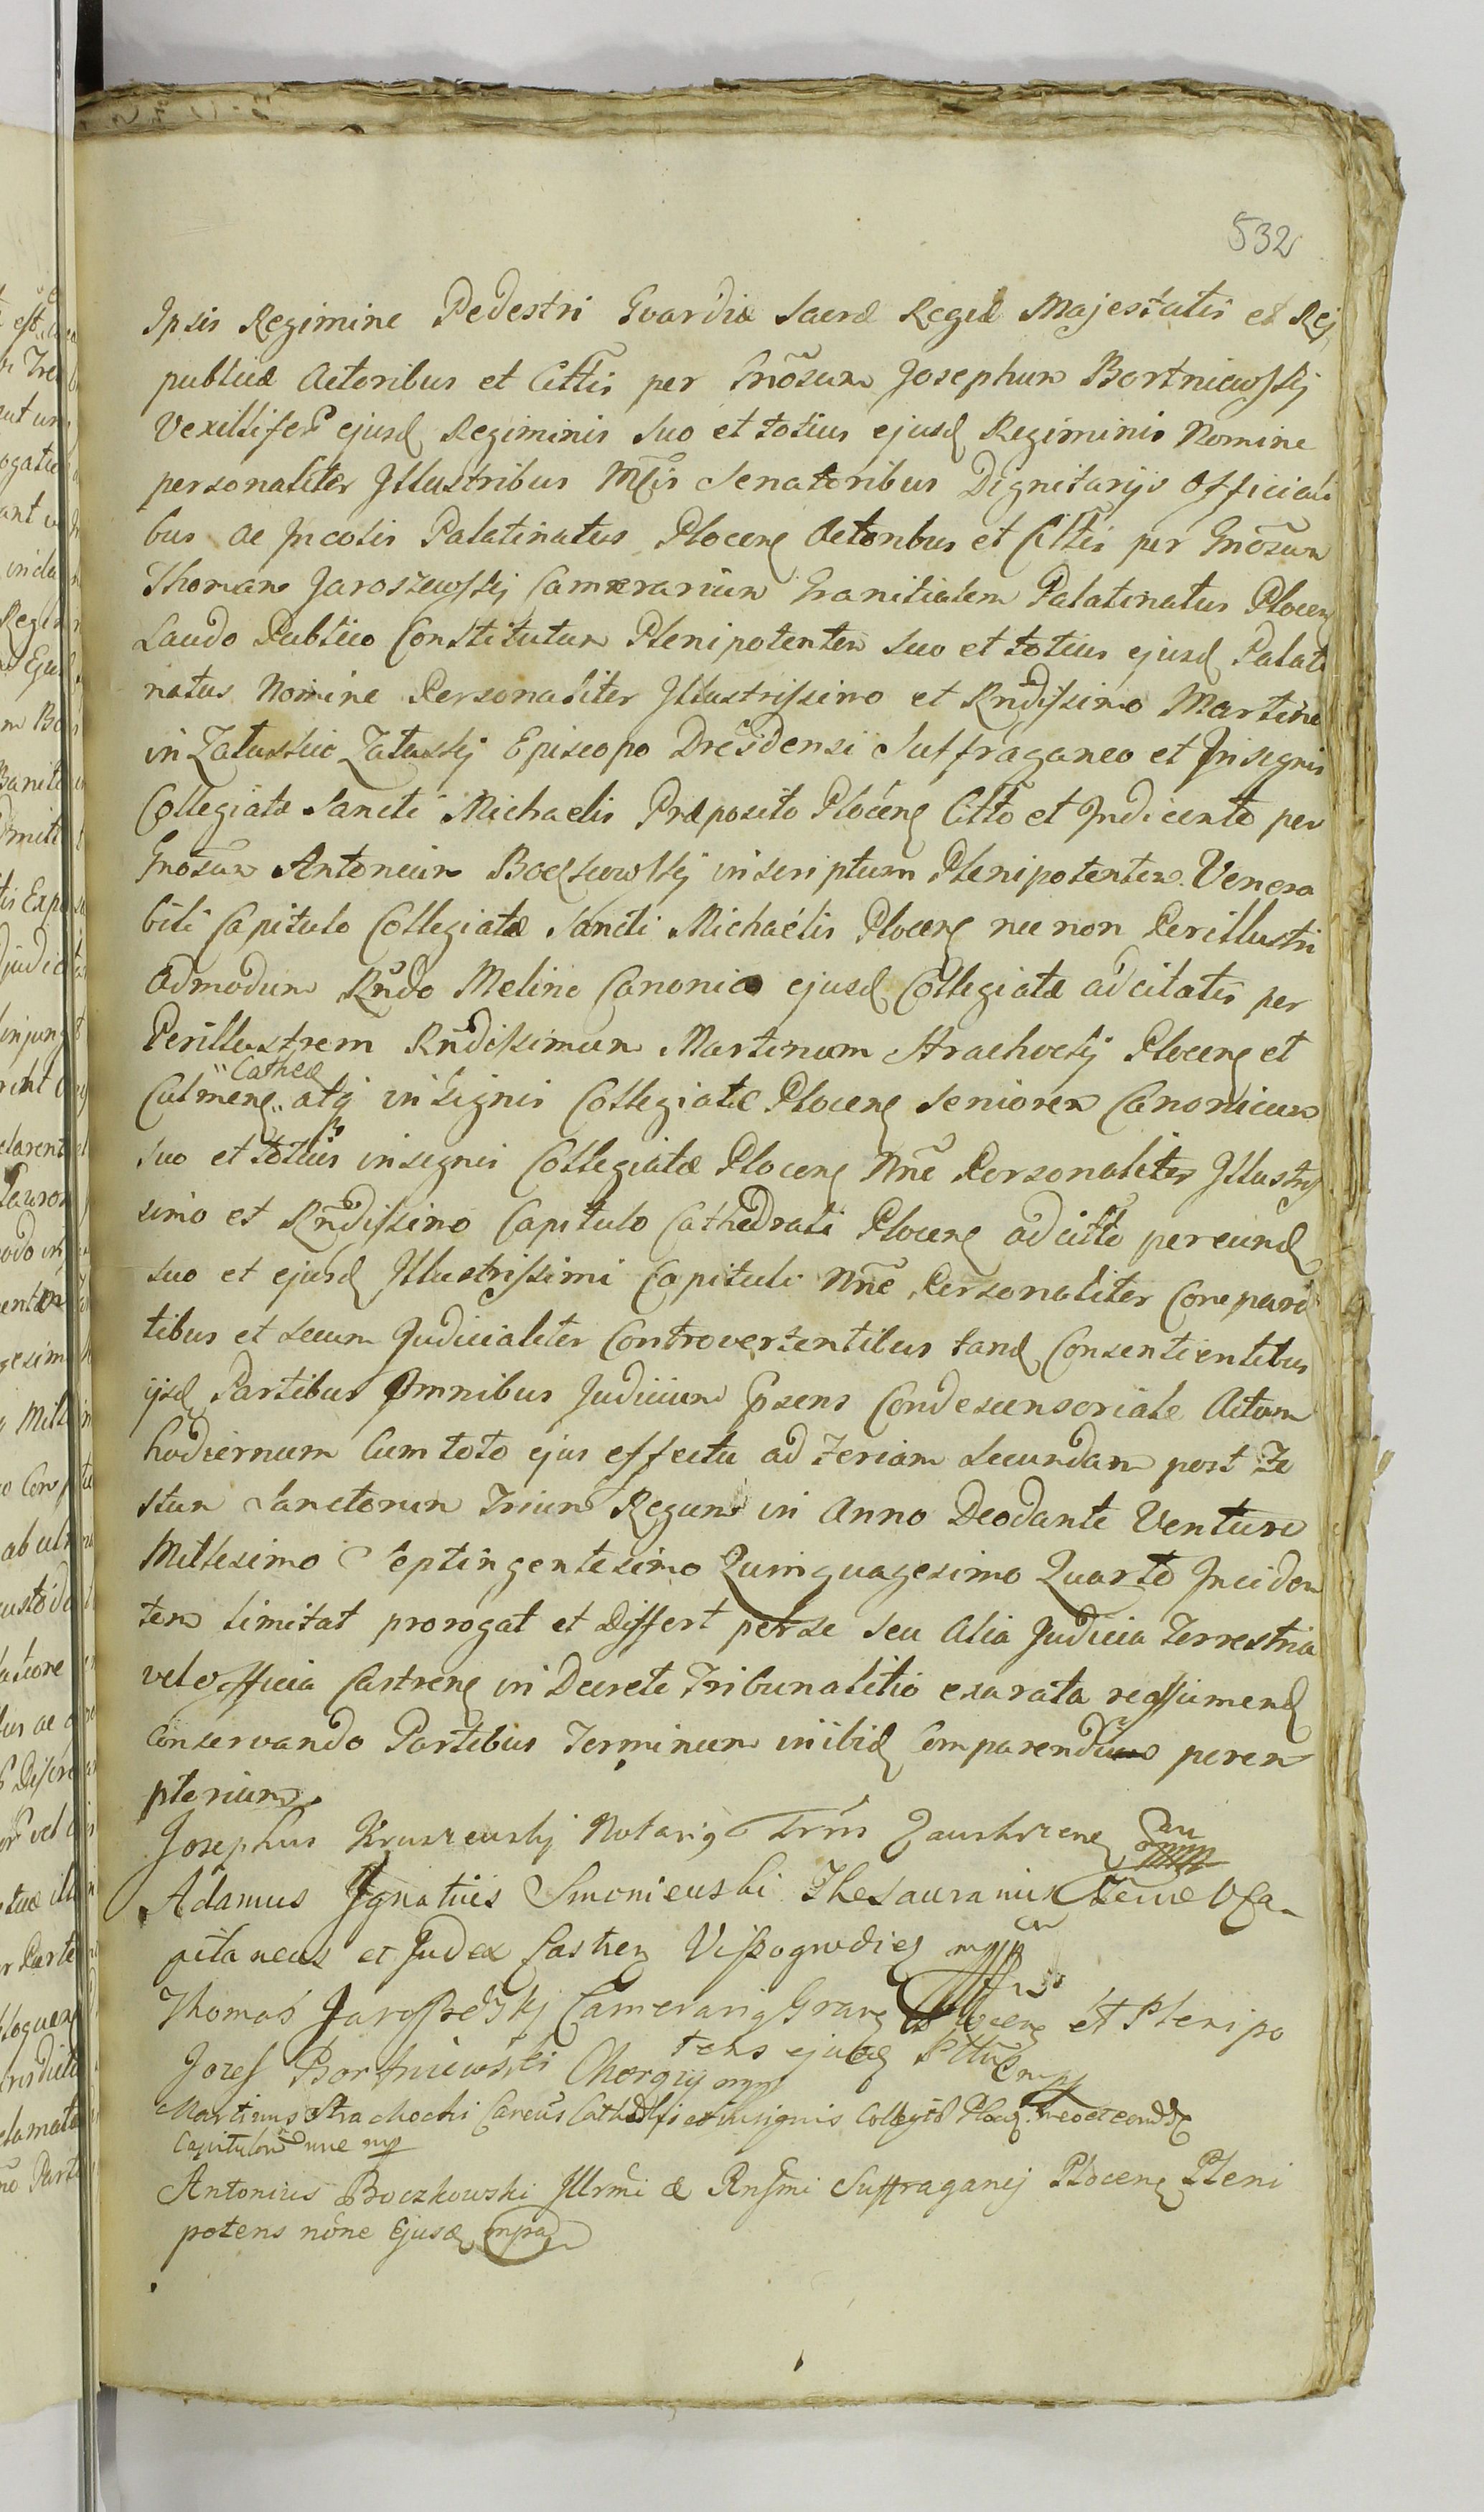 532
Ipsis Regimine Pedestri Gvardiæ Sacræ Regiæ Majestatis et Rej
publicæ Actoribus et Cittis per Gnõsum Josephum Bortniewskij
Vexilliferũ ejusd Regiminis suo et totius ejusd Regiminis Nomine
personaliter Illustribus Mcis Senatoribus Dignitarijs Officiali
bus ac Incolis Palatinatus Plocens Actoribus et Cittis per Gnõsum
Thomam Jaroszewskij Camerarium Granitialem Palatinatus Plocens
Laudo Publico Constitutum Plenipotentem suo et totius ejusd Palati
natus Nomine Personaliter Illustrissimo et Rndissimo Martino
in Załuskie Załuskij Episcopo Dresdensi Suffraganeo et Insignis
Collegiatæ Sancti Michaelis Præposito Plocens Citto et Indicente per
Gnosum Antonium Boczkowskij inscriptum Plenipotentem Venera
bili Capitulo Collegiatæ Sancti Michaelis Plocens nec non Perillustri
admodum Rndo Melino Canonico ejusd Collegiatæ adcitatis per
Perillustrem Rndissimum Martinum Strachockij Plocens et
Cathed
Culmens atq insignis Collegiatæ Plocens Seniorem Canonicum
suo et totius insignis Collegiatæ Plocens Nne Personaliter Illustris
simo et Rndissimo Capitulo Cathedrali Plocens adcitto per eund
suo et ejusd Illustrissimi Capituli Nne Personaliter Comparen
tibus et secum Judicialiter Controvertentibus tand Consentientibus
ijsd Partibus Omnibus Judicium Præsens Condescensoriale Actum
hodiernum Cum toto ejus effectu ad Feriam Secundam post Fe
stum Sanctorum Trium Regum in Anno Deo dante Venturo
Millesimo Septingentesimo Quinquagesimo Quarto Inciden
tem limitat prorogat et differt per se seu alia Judicia Terrestria
vel officia Castrens in Decreto Tribunalitio exarata reassumend
Conservando Partibus Terminum inibid Comparendum perem
ptorium.
Josephus Kruszewskij Notarig Trris Zauskrzens
Adamus Ignatius Smoniewski Thesaurarius Vca
pitaneus et Judex Castren Vissogrodien mpp
Thomas Jaroszewskj Camerarig Gran Plocens et Plenipo
tens ejusd Pttus mpp
Jozef Bortniewski Chorąży mpp
Martinus Strachocki Cancus Cathedlis et insignis Collegtæ Plocn meo et eorund
Capitulorũ nne mp
Antonius Boczkowski Illrmi & Rnsmi Suffraganej Plocens Pleni
potens nõne Ejusd mpa